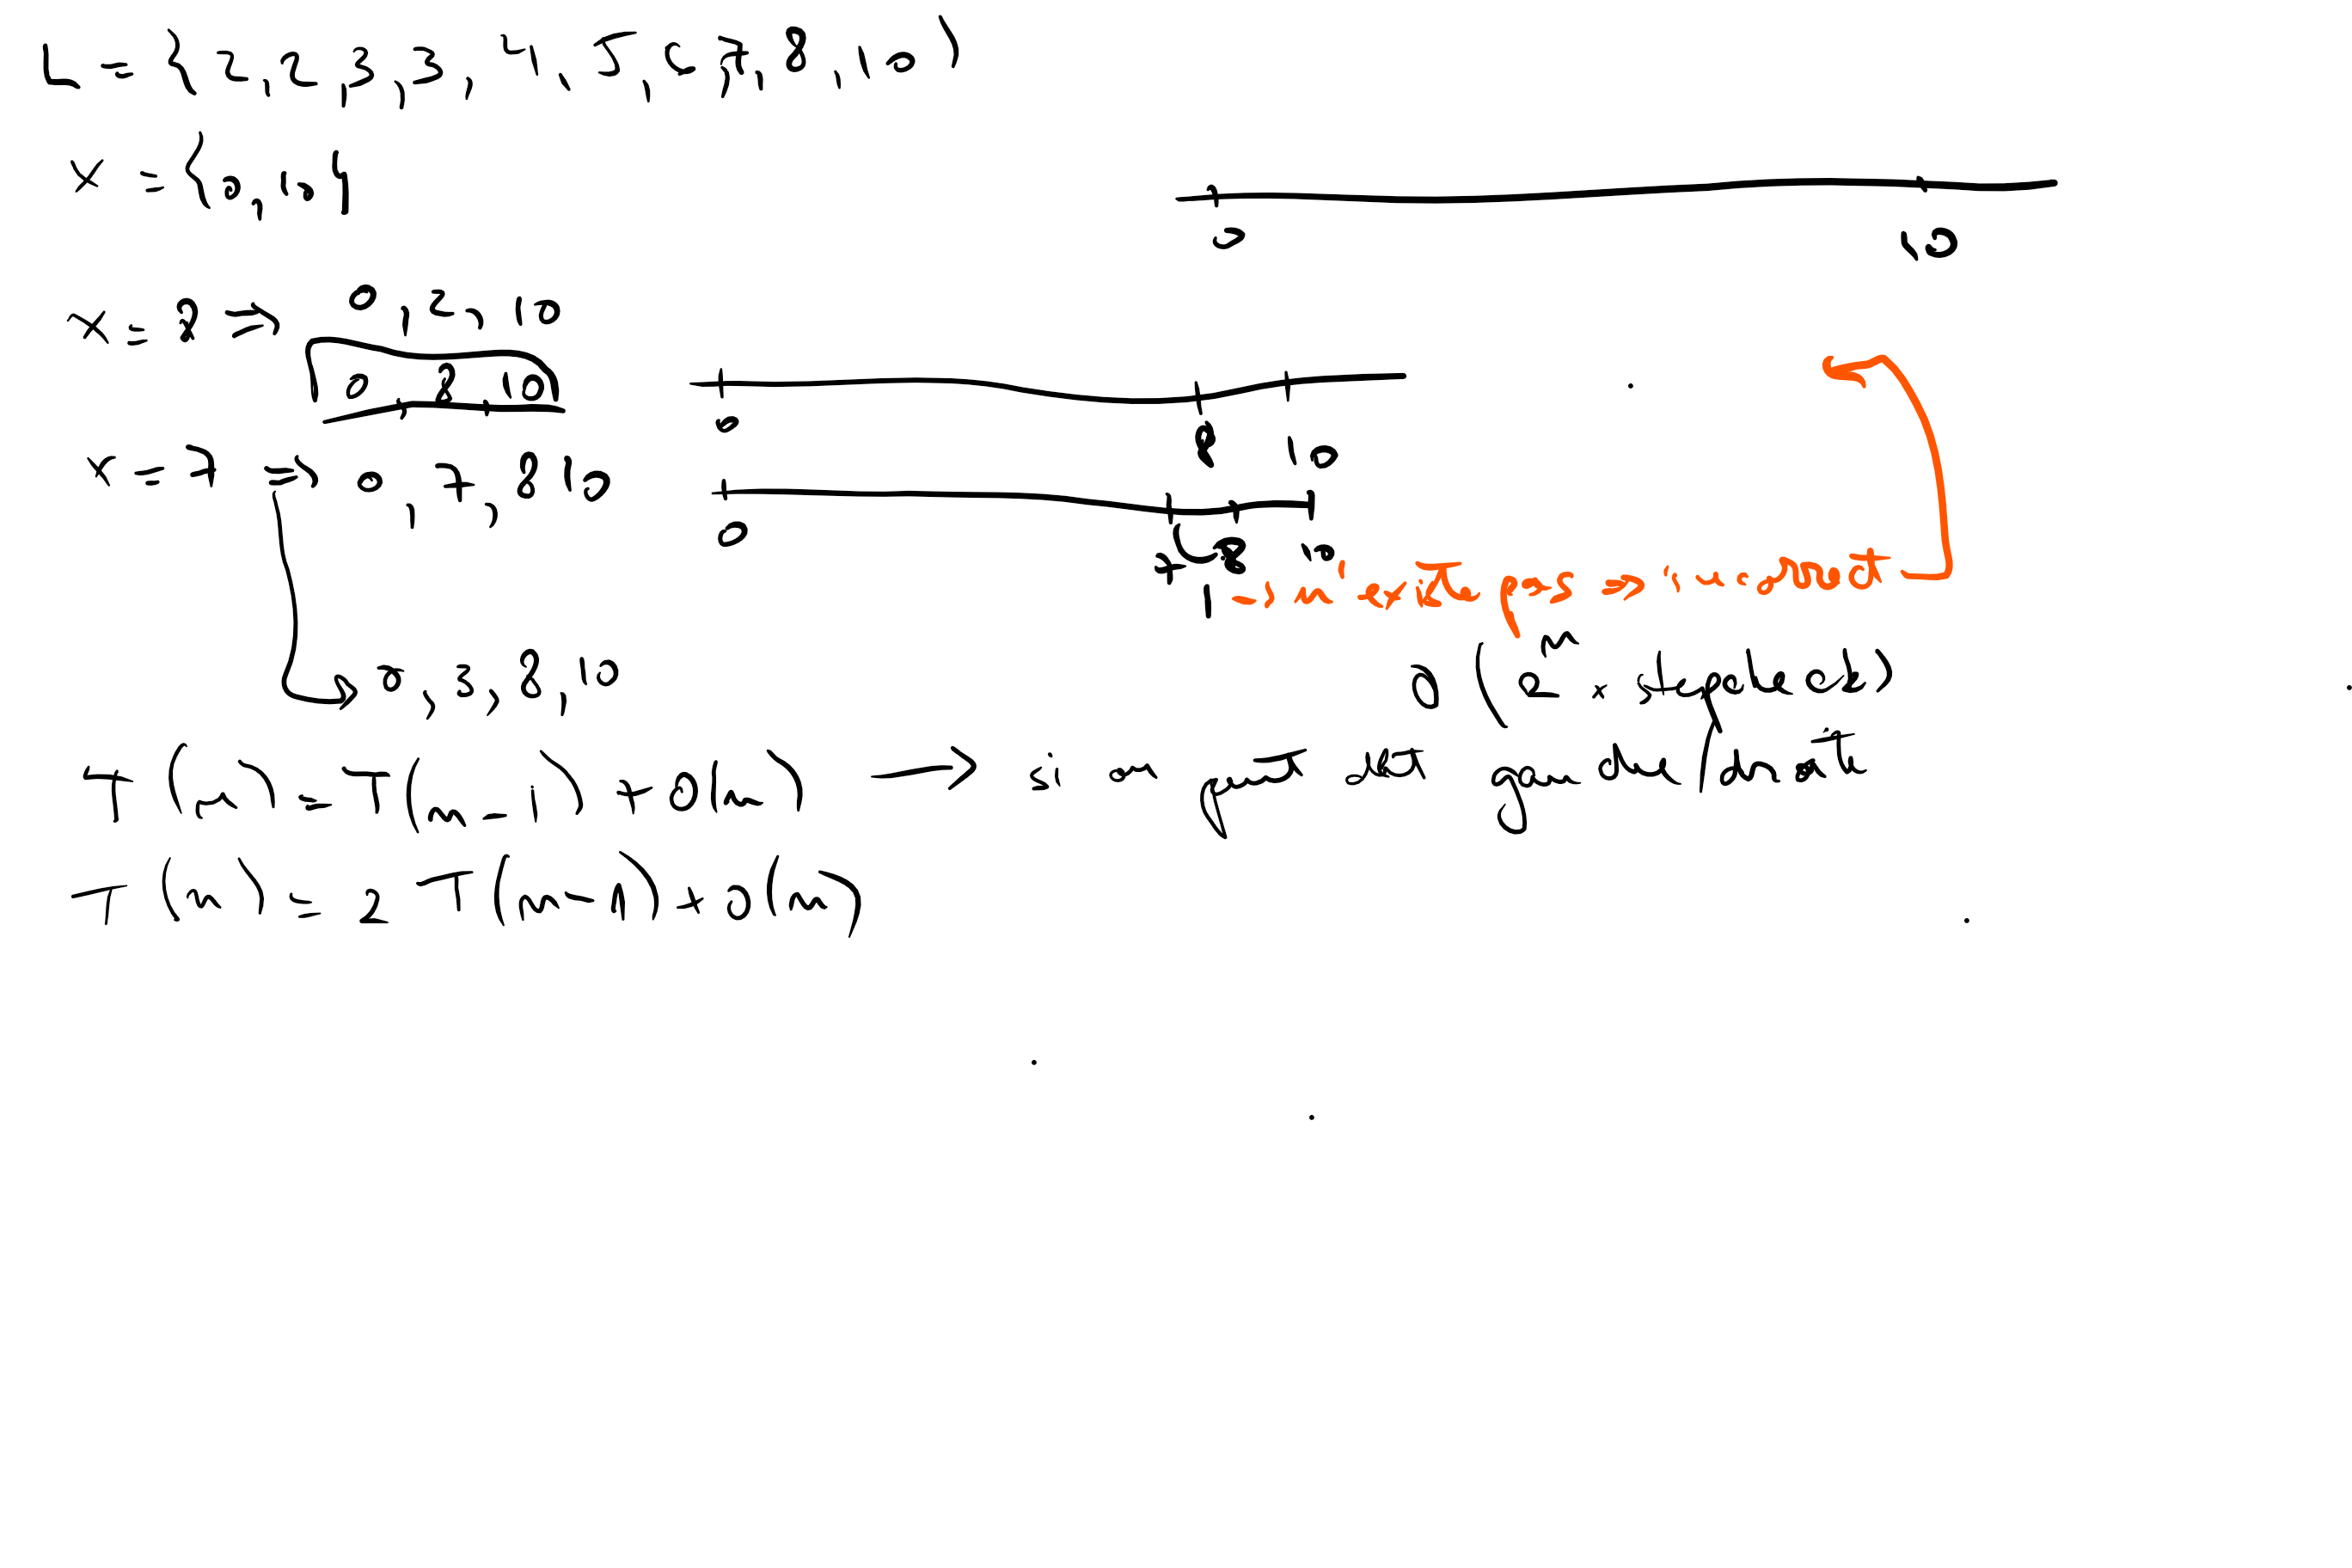 L = {2,2,3,3,4,5,6,7,8,10}
X = {0,10}
0 10
x = 8 => 0,2,10
0,8,10
0 8 10
x = 7 => 0,7,8,10
0 7 8 10
1 - n'existe pas =>
0,3,8,10
O(2^n × steps)
T(n) = T(n-1) + O(n) → si on peut dire gauche/droite
T(n) = 2T(n-1) + O(n)